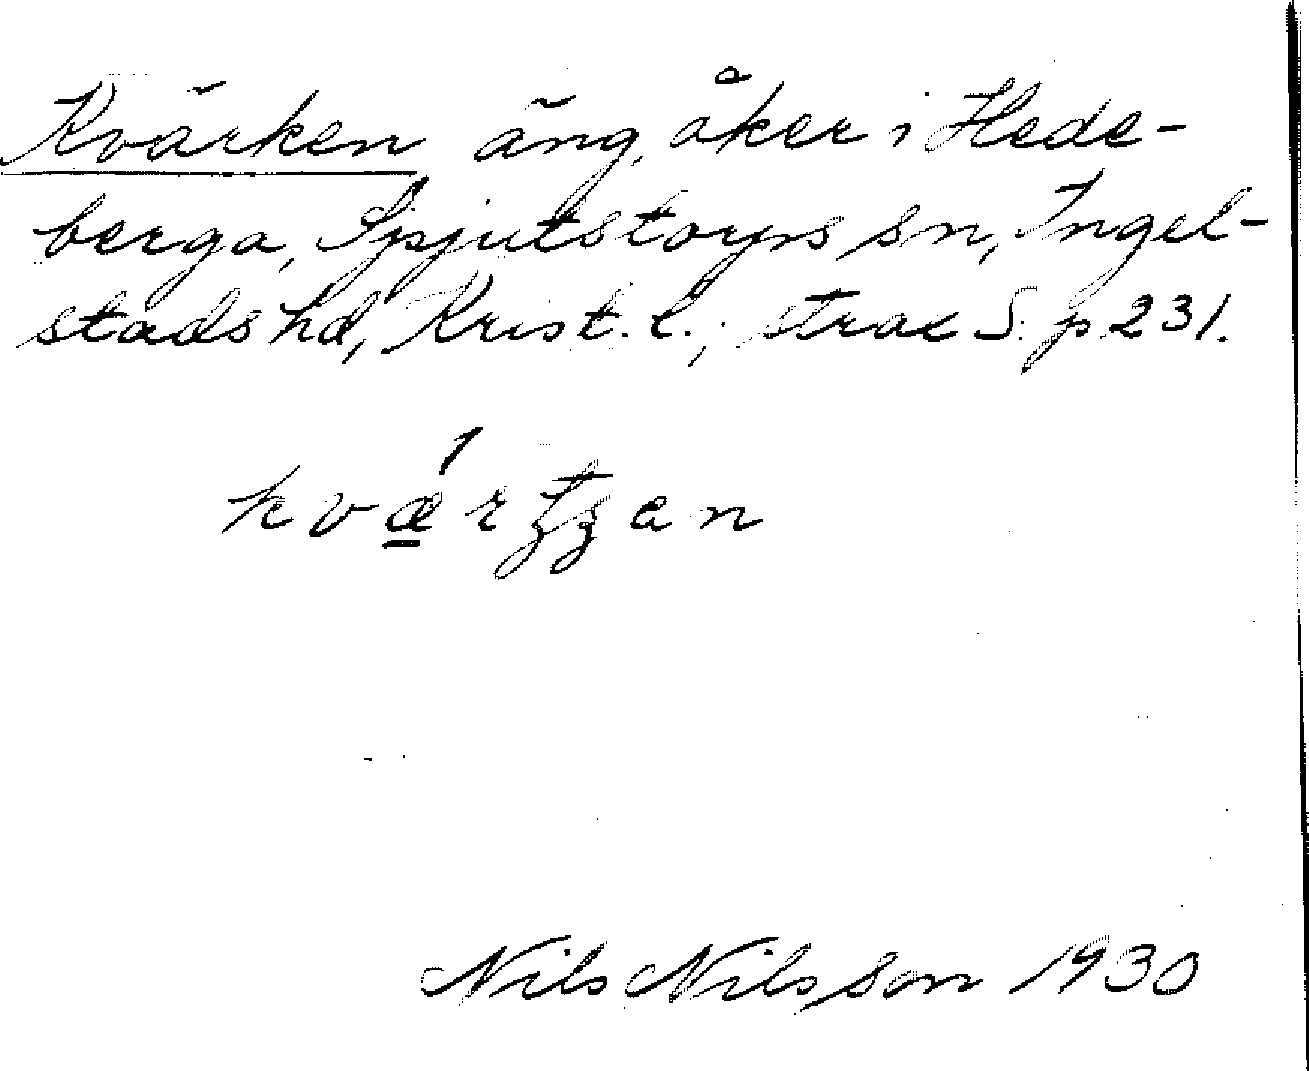 Kvärken äng, åker i Hede-
berga, Spjutstorps sn, Ingel-
stads hd, Krist. l.; strax S. p 231.
Nils Nilsson 1930